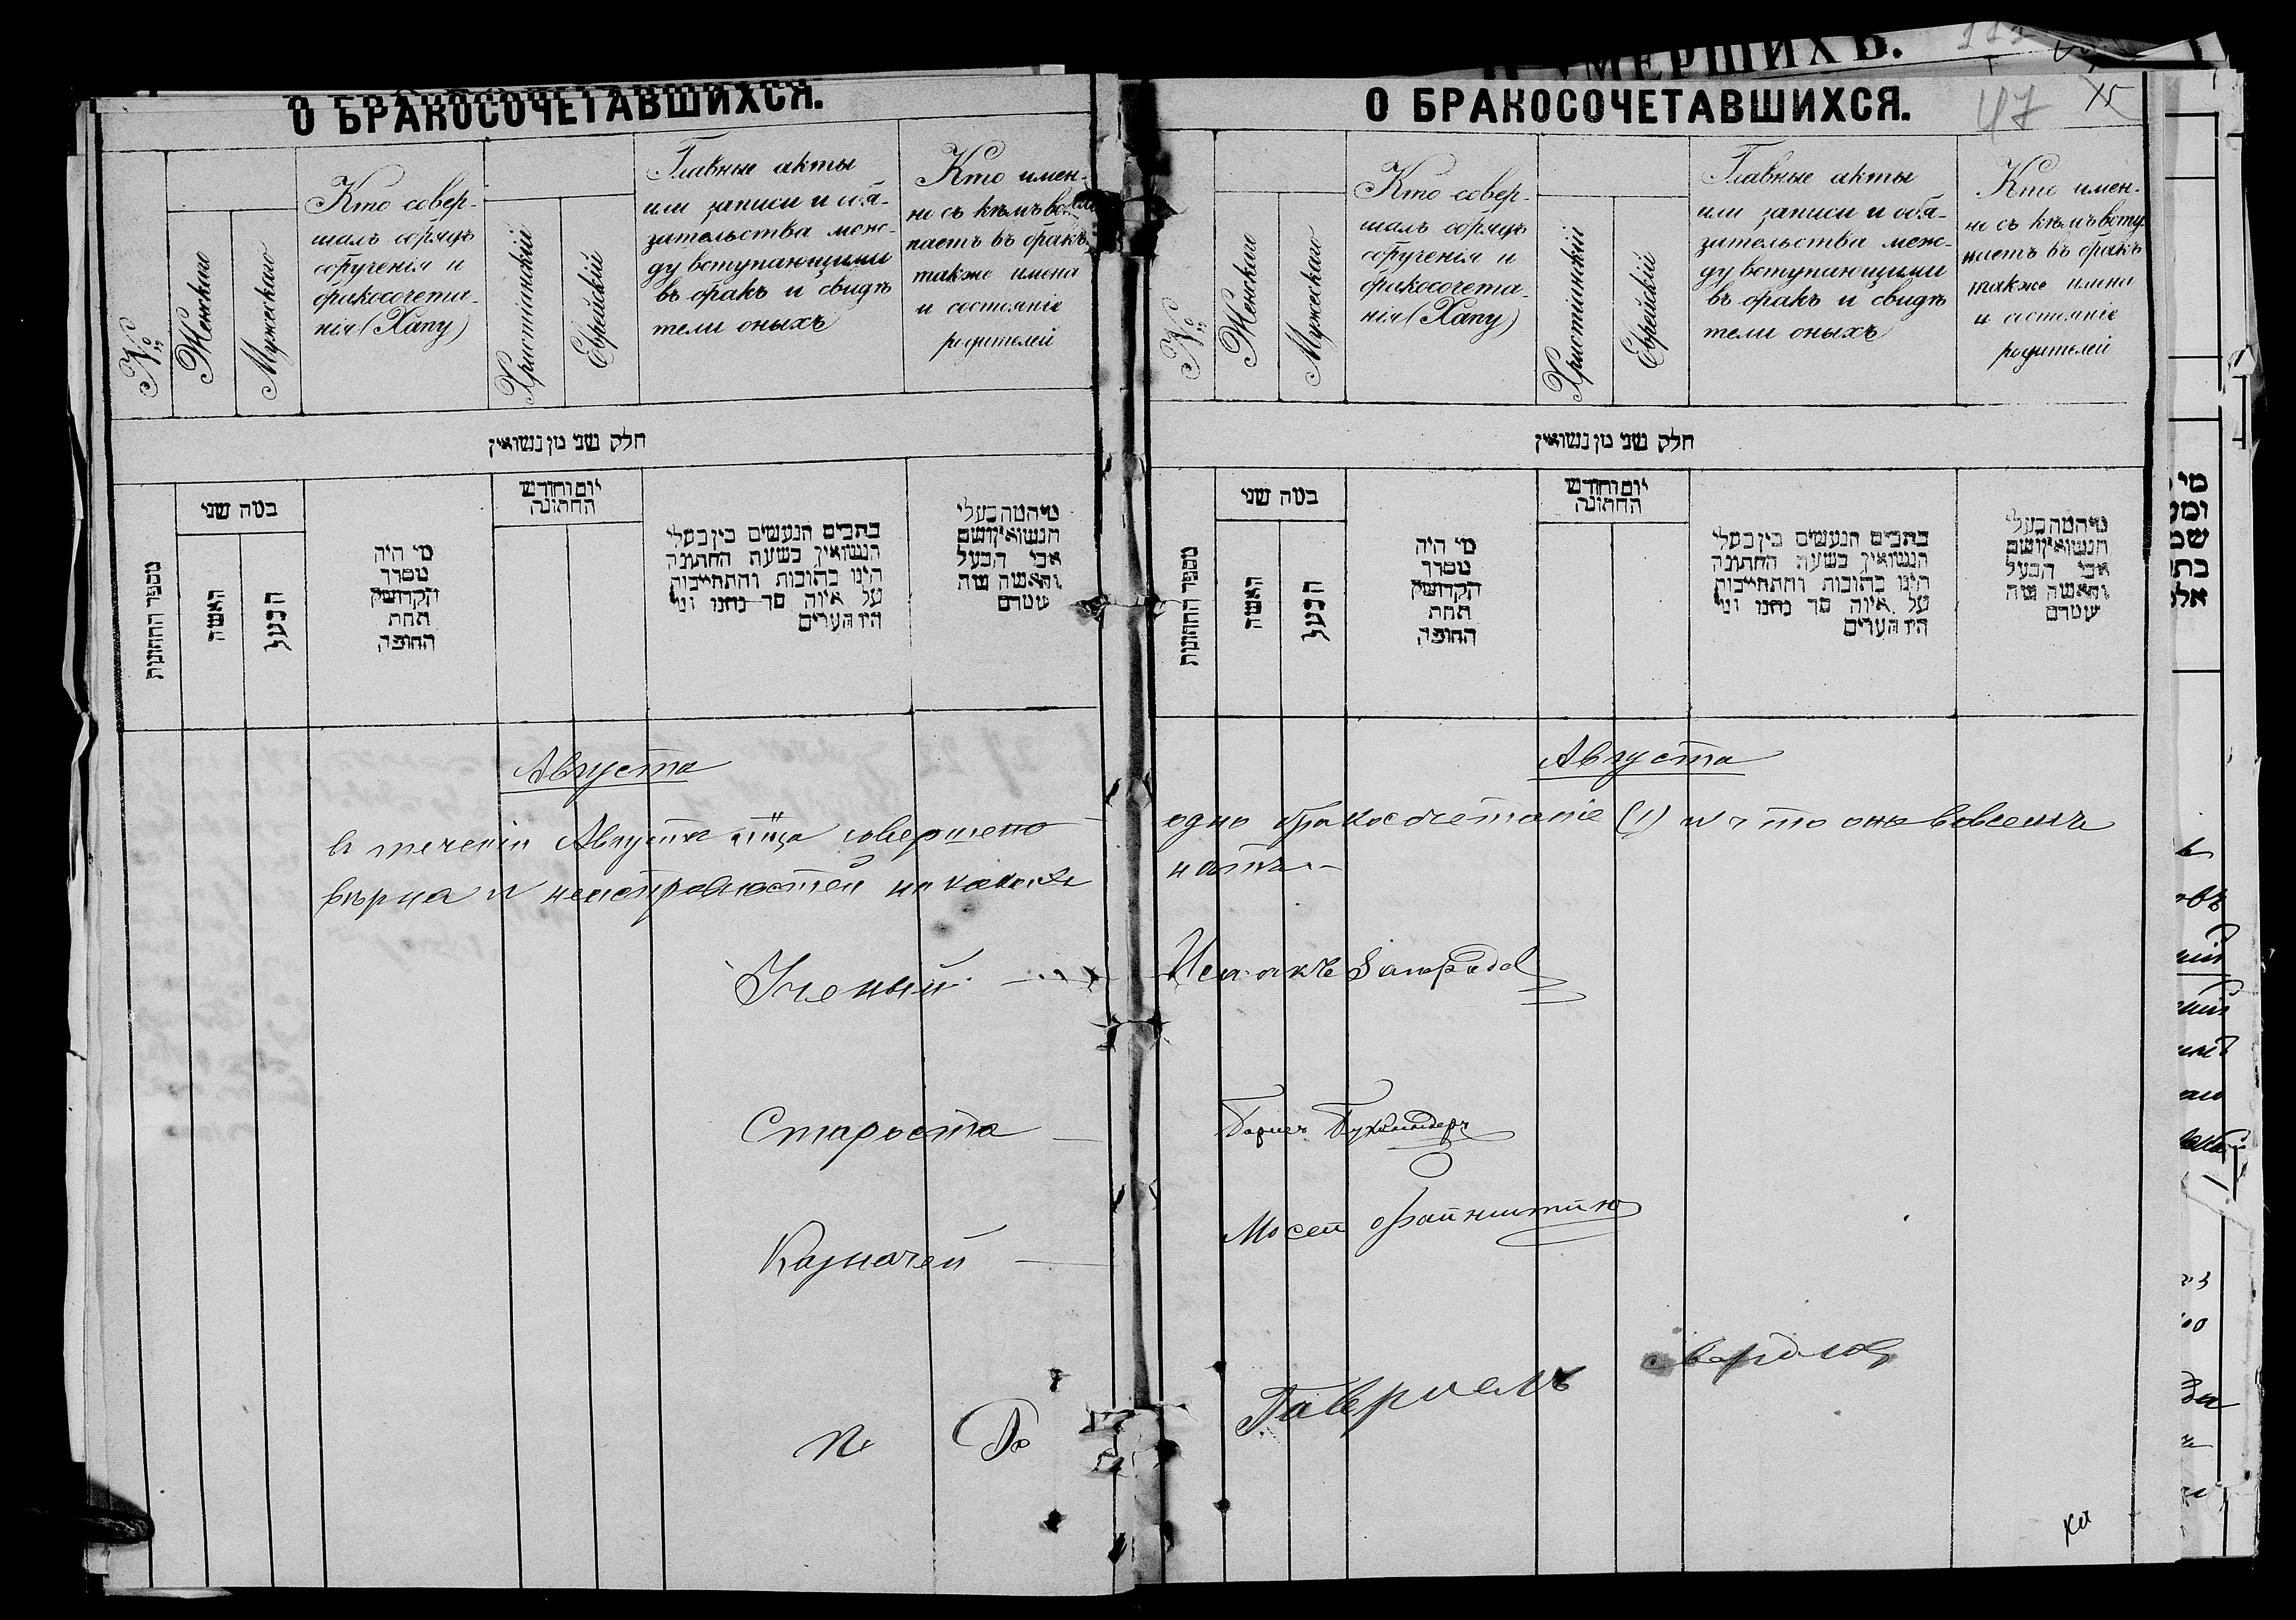 О БРАКОСОЧЕТАВШИХСЯ.
№
Женскаго
Мужескаго
Кто совер-
шалъ обрядъ
обрученія и
бракосочета-
нія (Хапу)
Христіанскій
Еврейскій
Главные акты
или записи и обя-
зательства меж-
ду вступающими
въ бракъ и свидѣ
тели оныхъ
Кто имен-
но съ кѣмъ всту
паетъ въ бракъ
также имена
и состояніе
родителей
חלק שני מן נשואין
מספר החתונות
כמה שני
האשה
הבעל
מי היה
מסדר
הקדושין
תחת
החופה
יום וחודש
החתונה
כתבים הנעשים בין בעלי
הנשואין בשעת החתונה
היינו כתובות והתחייבות
על איזה סך נתנו ומי
היו הערים
מי המה בעלי
הנשואין ושם
אבי הבעל
והאשה מה
מעמדם
Августа
въ теченіи Августа м-ца совершено
вѣрна и неисправностей ни какихъ
Ученый
Староста
Казначей
О БРАКОСОЧЕТАВШИХСЯ.
47
15
№
Женскаго
Мужескаго
Кто совер-
шалъ обрядъ
обрученія и
бракосочета-
нія (Хапу)
Христіанскій
Еврейскій
Главные акты
или записи и обя-
зательства меж-
ду вступающими
въ бракъ и свидѣ
тели оныхъ
Кто имен-
но съ кѣмъ всту
паетъ въ бракъ
также имена
и состояніе
родителей
חלק שני מן נשואין
מספר החתונות
כמה שני
האשה
הבעל
מי היה
מסדר
הקדושין
תחת
החופה
יום וחודש
החתונה
כתבים הנעשים בין בעלי
הנשואין בשעת החתונה
היינו כתובות והתחייבות
על איזה סך נתנו ומי
היו הערים
מי המה בעלי
הנשואין ושם
אבי הבעל
והאשה מה
מעמדם
Августа
одно бракосочетаніе (1) и что оно вовсемъ
нѣтъ.
Исаакъ
Мосей Файнштейн
Гавріилъ
УМЕРШИХЪ.